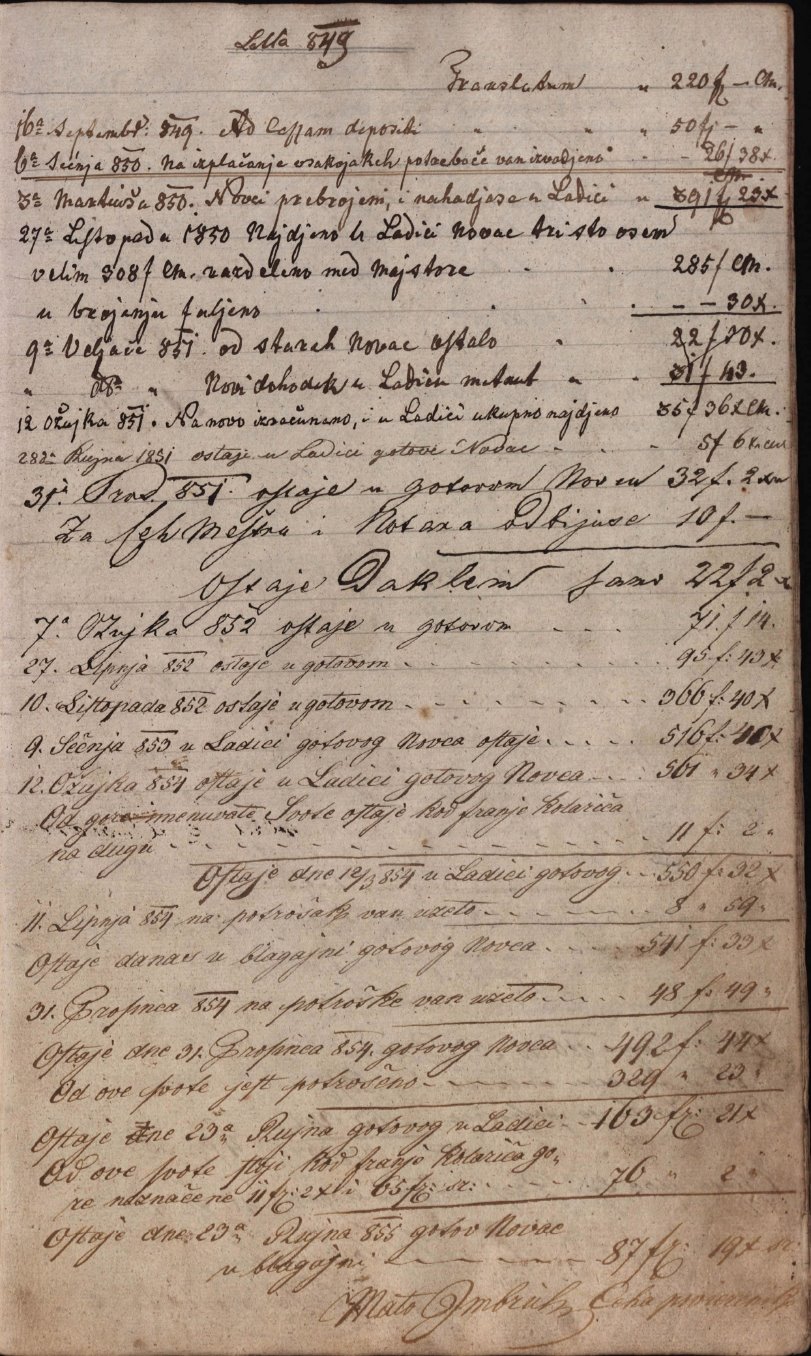 Letta 849
Translatum " 220 f — CM.
16a Septembr: 849. Ad Cessam depositi " " " 50 f — "
6a Sečnja 850. Na izplačanje vsakojakeh potreboče van izvadjeno - - 26 f 38 x
3a Martiuša 850. Novci prebrojeni, i nahadjase u Ladici " 391 f 23 x
27a Listopada 1850 Najdjeno u Ladici Novac tri sto osem
velim 308 f CM. razdeleno med Majstore - - 285 f CM.
u brojanju faljeno . . . - - 30 x.
9a Veljače 851. od stareh Novac ostalo - 22 f 30 x.
" do " Novi dohodek u Ladicu metnut " " 31 f 43.
12 Ožujka 851. Na novo izračunano, i u Ladici ukupno najdjeno 35 f 36 x CM.
282a Rujna 1851 ostaje u Ladici gotove Novac - - - 5 f 6 x. cm
31a Pros. 851. ostaje u gotovom Novcu 32 f. 2 x
Za Ceh Meštra i Notara odbijase 10 f. —
Ostaje Daklem samo 22 f 2 x
7a Ožujka 852 ostaje u gotovom - - - 71 f 14.
27. Lipnja 852 ostaje u gotovom - - - 95 f: 43 x
10. Listopada 852 ostaje u gotovom - - - 366 f: 40 x
9. Sečnja 853 u Ladici gotovog Novca ostaje - - - 516 f: 40 x
12. Ožujka 854 ostaje u Ladici gotovog Novca - - 561 " 34 x
Od gore imenuvate Svote ostaje kod franje Kolariča
na dugu - - - 11 f: 2 "
Ostaje dne 12/3 854 u Ladici gotovog - - 550 f: 32 x
11. Lipnja 854 na potrošak van uzeto - - - 8 " 59 "
Ostaje danas u blagajni gotovog Novca - - - 541 f: 33 x
31. Prosinca 854 na potroške van uzeto - - - 48 f: 49 "
Ostaje dne 31. Prosinca 854. gotovog Novca - - 492 f: 44 x
Od ove svote jest potrošeno - - - 329 " 23 "
Ostaje dne 23a Rujna gotovog u Ladici - - 163 fr: 21 x
Od ove svote stoji kod franje Kolariča go-
re naznačene 11 fr: 2 x i 65 fr: sr: - - - 76 " 2 "
Ostaje dne 23a Rujna 855 gotov Novac
u blagajni - - - 87 fr: 19 x sr
Mato Ceha